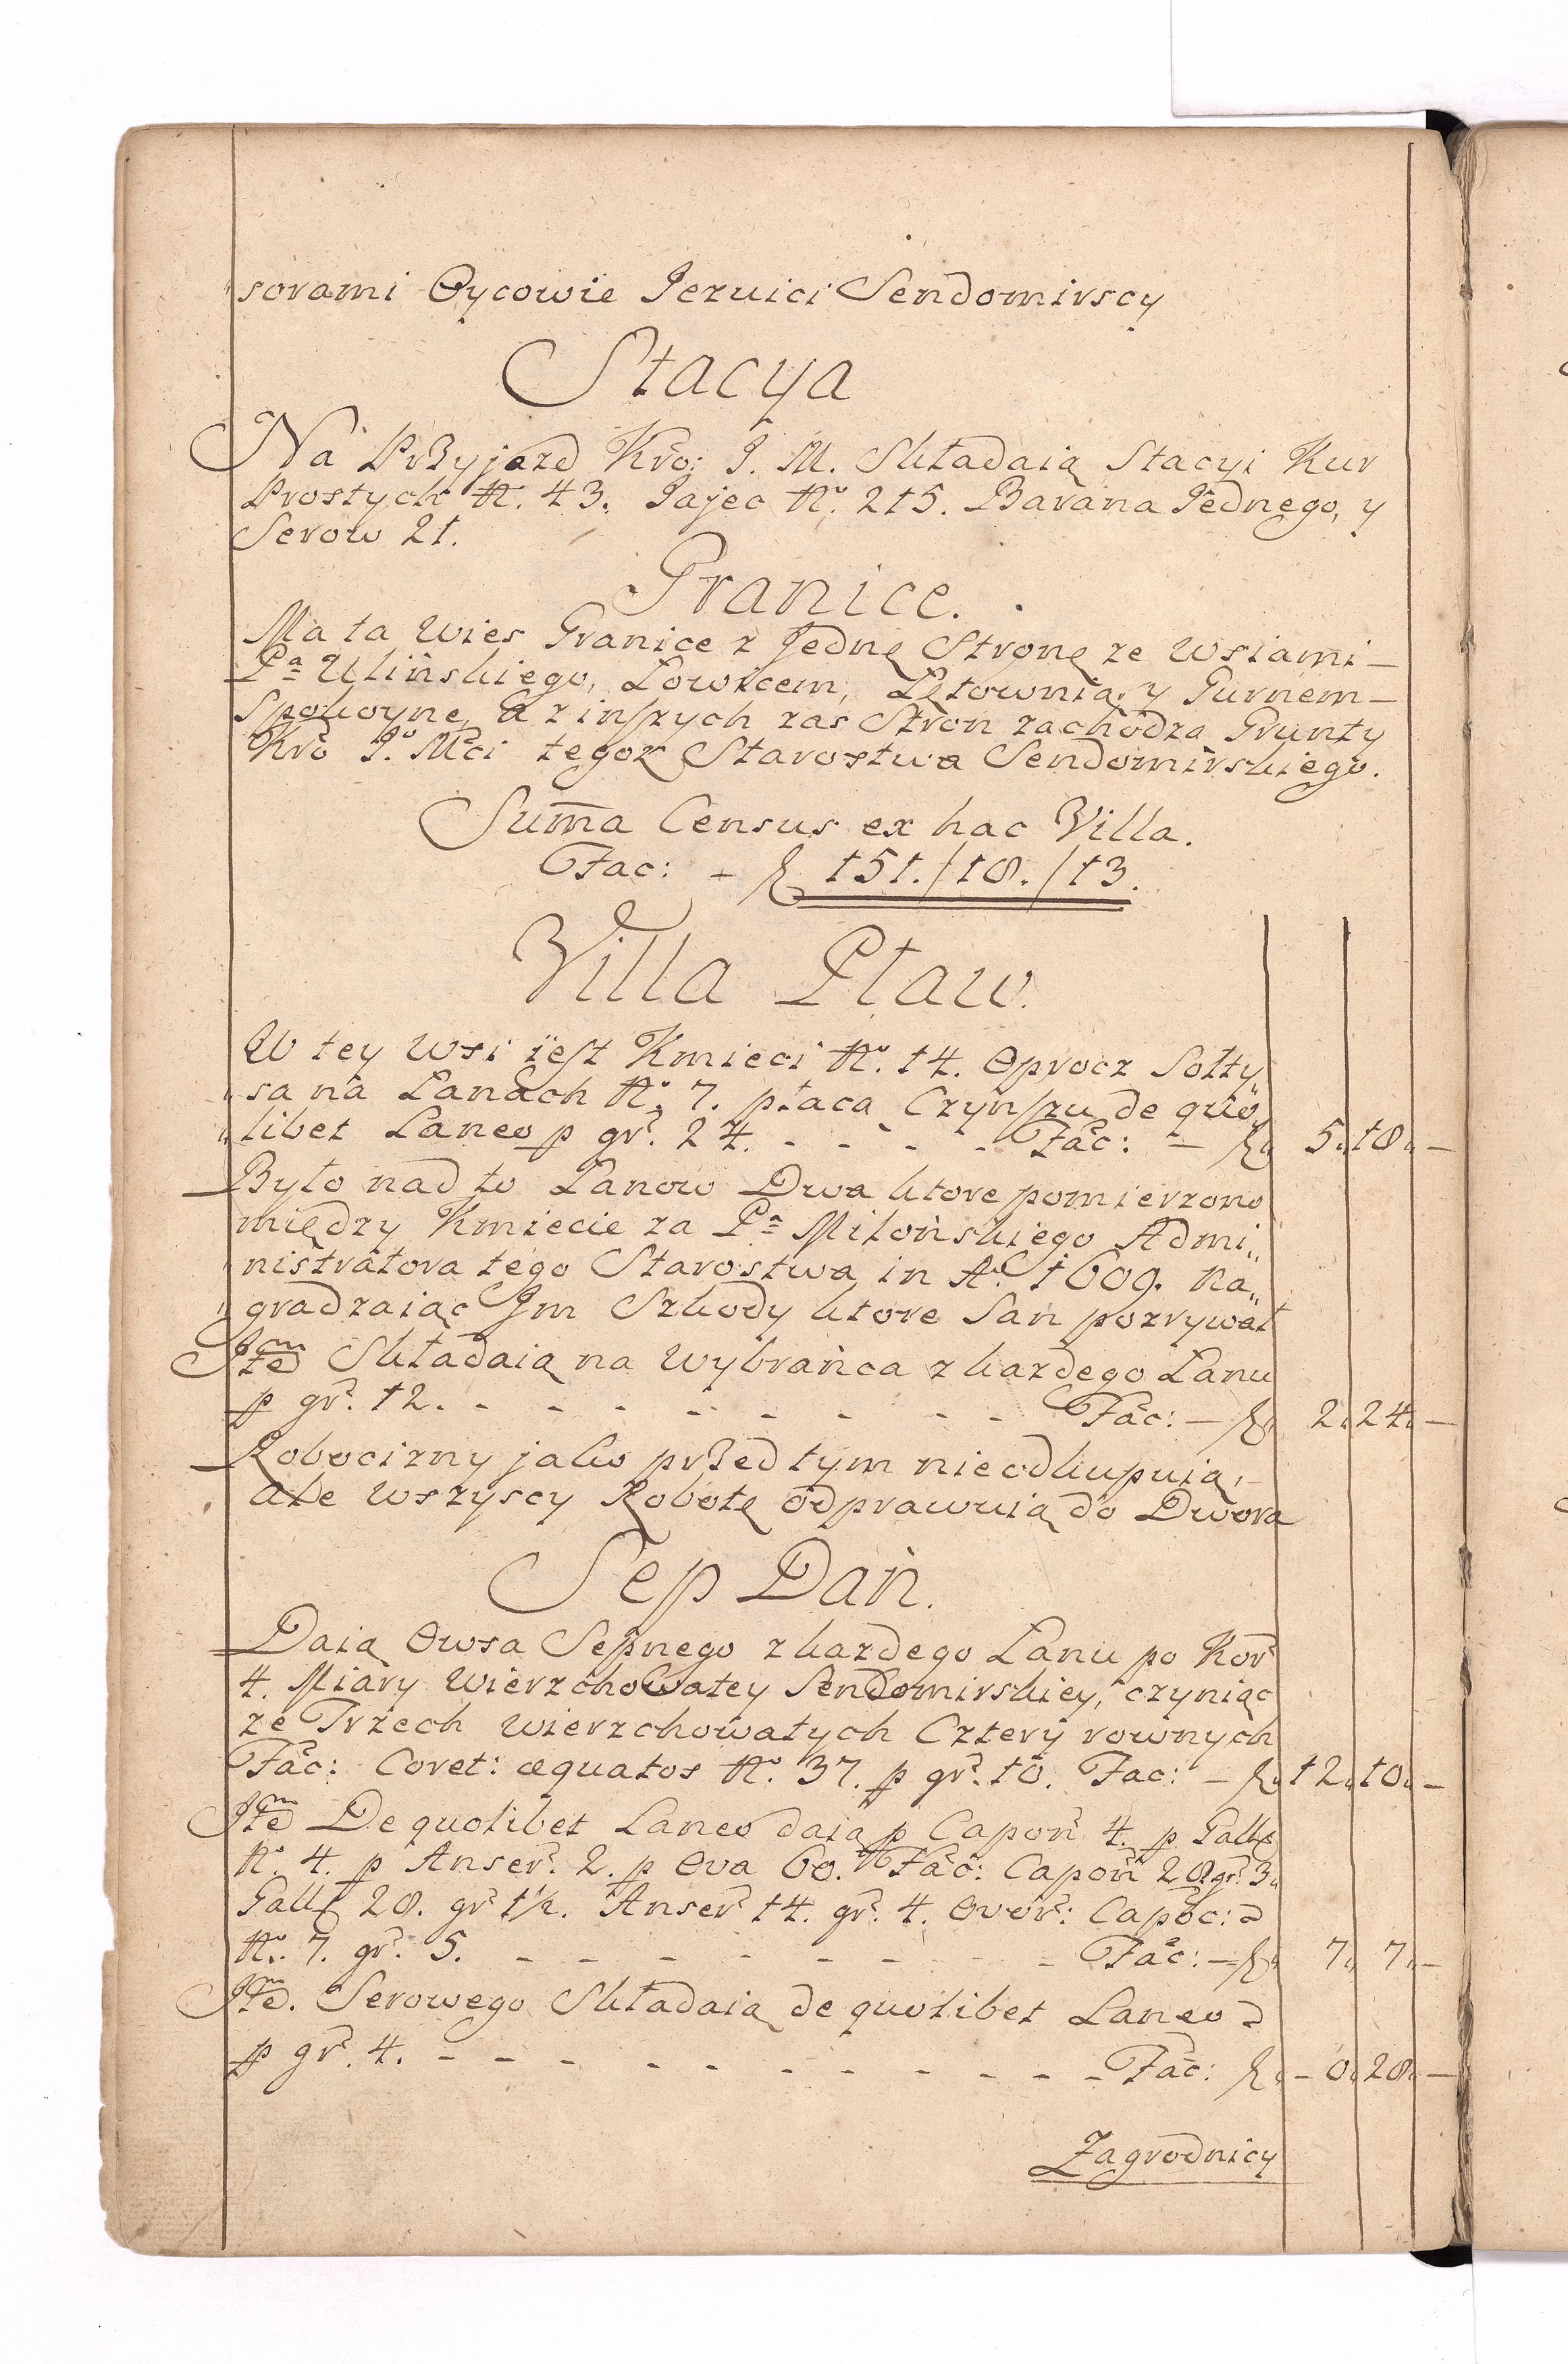 sorami Oycowie Jezuici Sendomirscy
Stacya
Na Przyjazd Kro: J. M. Składaią Stacyi Kur
Prostych No. 43. Jajec No. 215. Barana Jednego, y
Serow 21.
Granice.
Ma ta Wies Granice z Jednę Stronę ze Wsiami –
Pa Ulińskiego, Łowicem, Lętownią, y Gurnem –
Spokoyne, a z inszych zas Stron zachodzą Grunty
Kro Jo Mci tegoz Starostwa Sendomirskiego.
Suma Census ex hac Villa.
Fac: – f 151./18./13.
Villa Pław.
W tey Wsi iest Kmieci No. 14. Oprocz Sołty„
„sa na Łanach No. 7. płacą Czynszu de quo„
„libet Laneo p gr. 24. – – – – Fac: – f 5.18. –
Było nad to Łanow Dwa ktore pomierzono
między Kmiecie za Pa Miłońskiego Admi„
„nistratora tego Starostwa in Ao 1609. na„
„gradzaiąc Jm Szkody ktore San pozrywał
Item Składaią na Wybrańca z kazdego Łanu
p gr. 12. – – – – – – – – Fac: – f 2.24. –
Robocizny jako przed tym nieodkupuią, –
ale wszyscy Robotę odprawuią do Dwora
Sep Dań.
Daią Owsa Sepnego z kazdego Łanu po Kor
4. Miary Wierzchowatey Sendomirskiey, czyniąc
ze Trzech Wierzchowatych Cztery rownych
Fac: Coret: æquatos No. 37. p gr. 10. Fac: – f 12.10. –
Item De quolibet Laneo daią p Capon 4. p Gall
No. 4. p Anser. 2. p Ova 60. Fac: Capon 28 gr. 3„
Gall 28. gr 1½. Anser 14. gr. 4. Over: Capoc:
No. 7. gr. 5. – – – – – – – – Fac: – f 7. 7. –
Item. Serowego Składaią de quolibet Laneo
p gr. 4. – – – – – – – – – – Fac: f – 0.28. –
Zagrodnicy